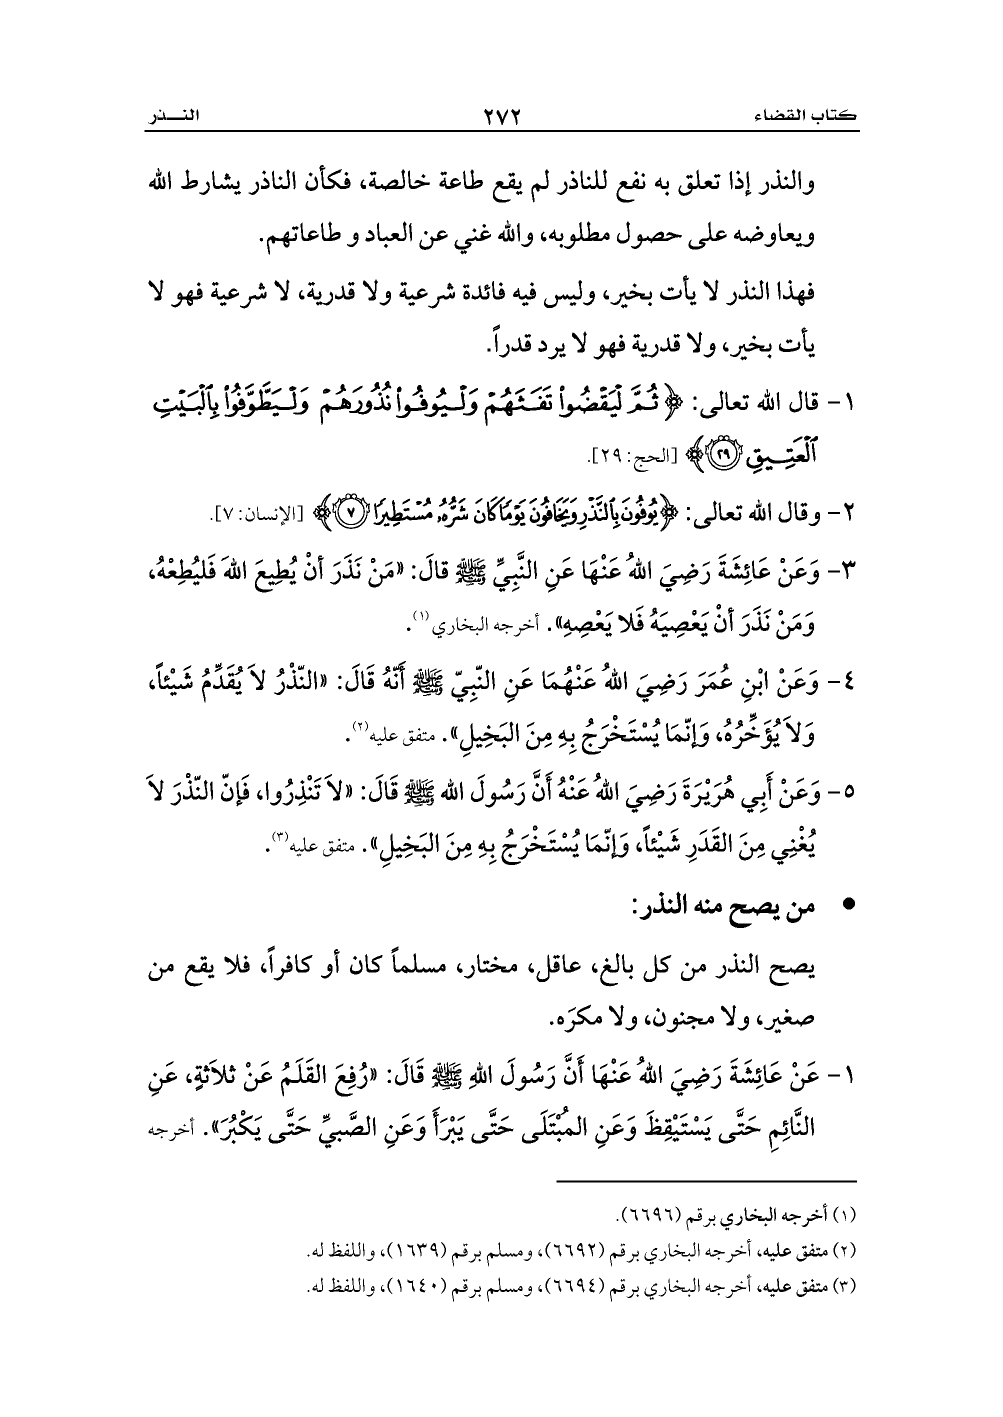 كتاب القضاء ٢٧٢ النـــذر
والنذر إذا تعلق به نفع للناذر لم يقع طاعة خالصة، فكأن الناذر يشارط الله
ويعاوضه على حصول مطلوبه، والله غني عن العباد و طاعاتهم.
فهذا النذر لا يأت بخير، وليس فيه فائدة شرعية ولا قدرية، لا شرعية فهو لا
يأت بخير، ولا قدرية فهو لا يرد قدراً.
١- قال الله تعالى: ﴿ثُمَّ لْيَقْضُوا۟ تَفَثَهُمْ وَلْيُوفُوا۟ نُذُورَهُمْ وَلْيَطَّوَّفُوا۟ بِٱلْبَيْتِ
ٱلْعَتِيقِ ٢٩﴾ [الحج: ٢٩].
٢- وقال الله تعالى: ﴿يُوفُونَ بِٱلنَّذْرِ وَيَخَافُونَ يَوْمًا كَانَ شَرُّهُۥ مُسْتَطِيرًا ٧﴾ [الإنسان: ٧].
٣- وَعَنْ عَائِشَةَ رَضِيَ اللهُ عَنْهَا عَنِ النَّبِيِّ ﷺ قالَ: «مَنْ نَذَرَ أنْ يُطِيعَ اللهَ فَليُطِعْهُ،
وَمَنْ نَذَرَ أنْ يَعْصِيَهُ فَلا يَعْصِهِ». أخرجه البخاري(١).
٤- وَعَنْ ابْنِ عُمَرَ رَضِيَ اللهُ عَنْهُمَا عَنِ النّبِيّ ﷺ أَنَّهُ قَالَ: «النّذْرُ لاَ يُقَدِّمُ شَيْئاً،
وَلاَ يُؤَخِّرُهُ، وَإنّمَا يُسْتَخْرَجُ بِهِ مِنَ البَخِيلِ». متفق عليه(٢).
٥- وَعَنْ أَبِي هُرَيْرَةَ رَضِيَ اللهُ عَنْهُ أَنَّ رَسُولَ الله ﷺ قَالَ: «لاَ تَنْذِرُوا، فَإنّ النّذْرَ لاَ
يُغْنِي مِنَ القَدَرِ شَيْئاً، وَإنّمَا يُسْتَخْرَجُ بِهِ مِنَ البَخِيلِ». متفق عليه(٣).
• من يصح منه النذر:
يصح النذر من كل بالغ، عاقل، مختار، مسلماً كان أو كافراً، فلا يقع من
صغير، ولا مجنون، ولا مكرَه.
١- عَنْ عَائِشَةَ رَضِيَ اللهُ عَنْهَا أَنَّ رَسُولَ اللهِ ﷺ قَالَ: «رُفِعَ القَلَمُ عَنْ ثلاَثةٍ، عَنِ
النَّائِمِ حَتَّى يَسْتَيْقِظَ وَعَنِ المُبْتَلَى حَتَّى يَبْرَأَ وَعَنِ الصَّبيِّ حَتَّى يَكْبُرَ». أخرجه
(١) أخرجه البخاري برقم (٦٦٩٦).
(٢) متفق عليه، أخرجه البخاري برقم (٦٦٩٢)، ومسلم برقم (١٦٣٩)، واللفظ له.
(٣) متفق عليه، أخرجه البخاري برقم (٦٦٩٤)، ومسلم برقم (١٦٤٠)، واللفظ له.